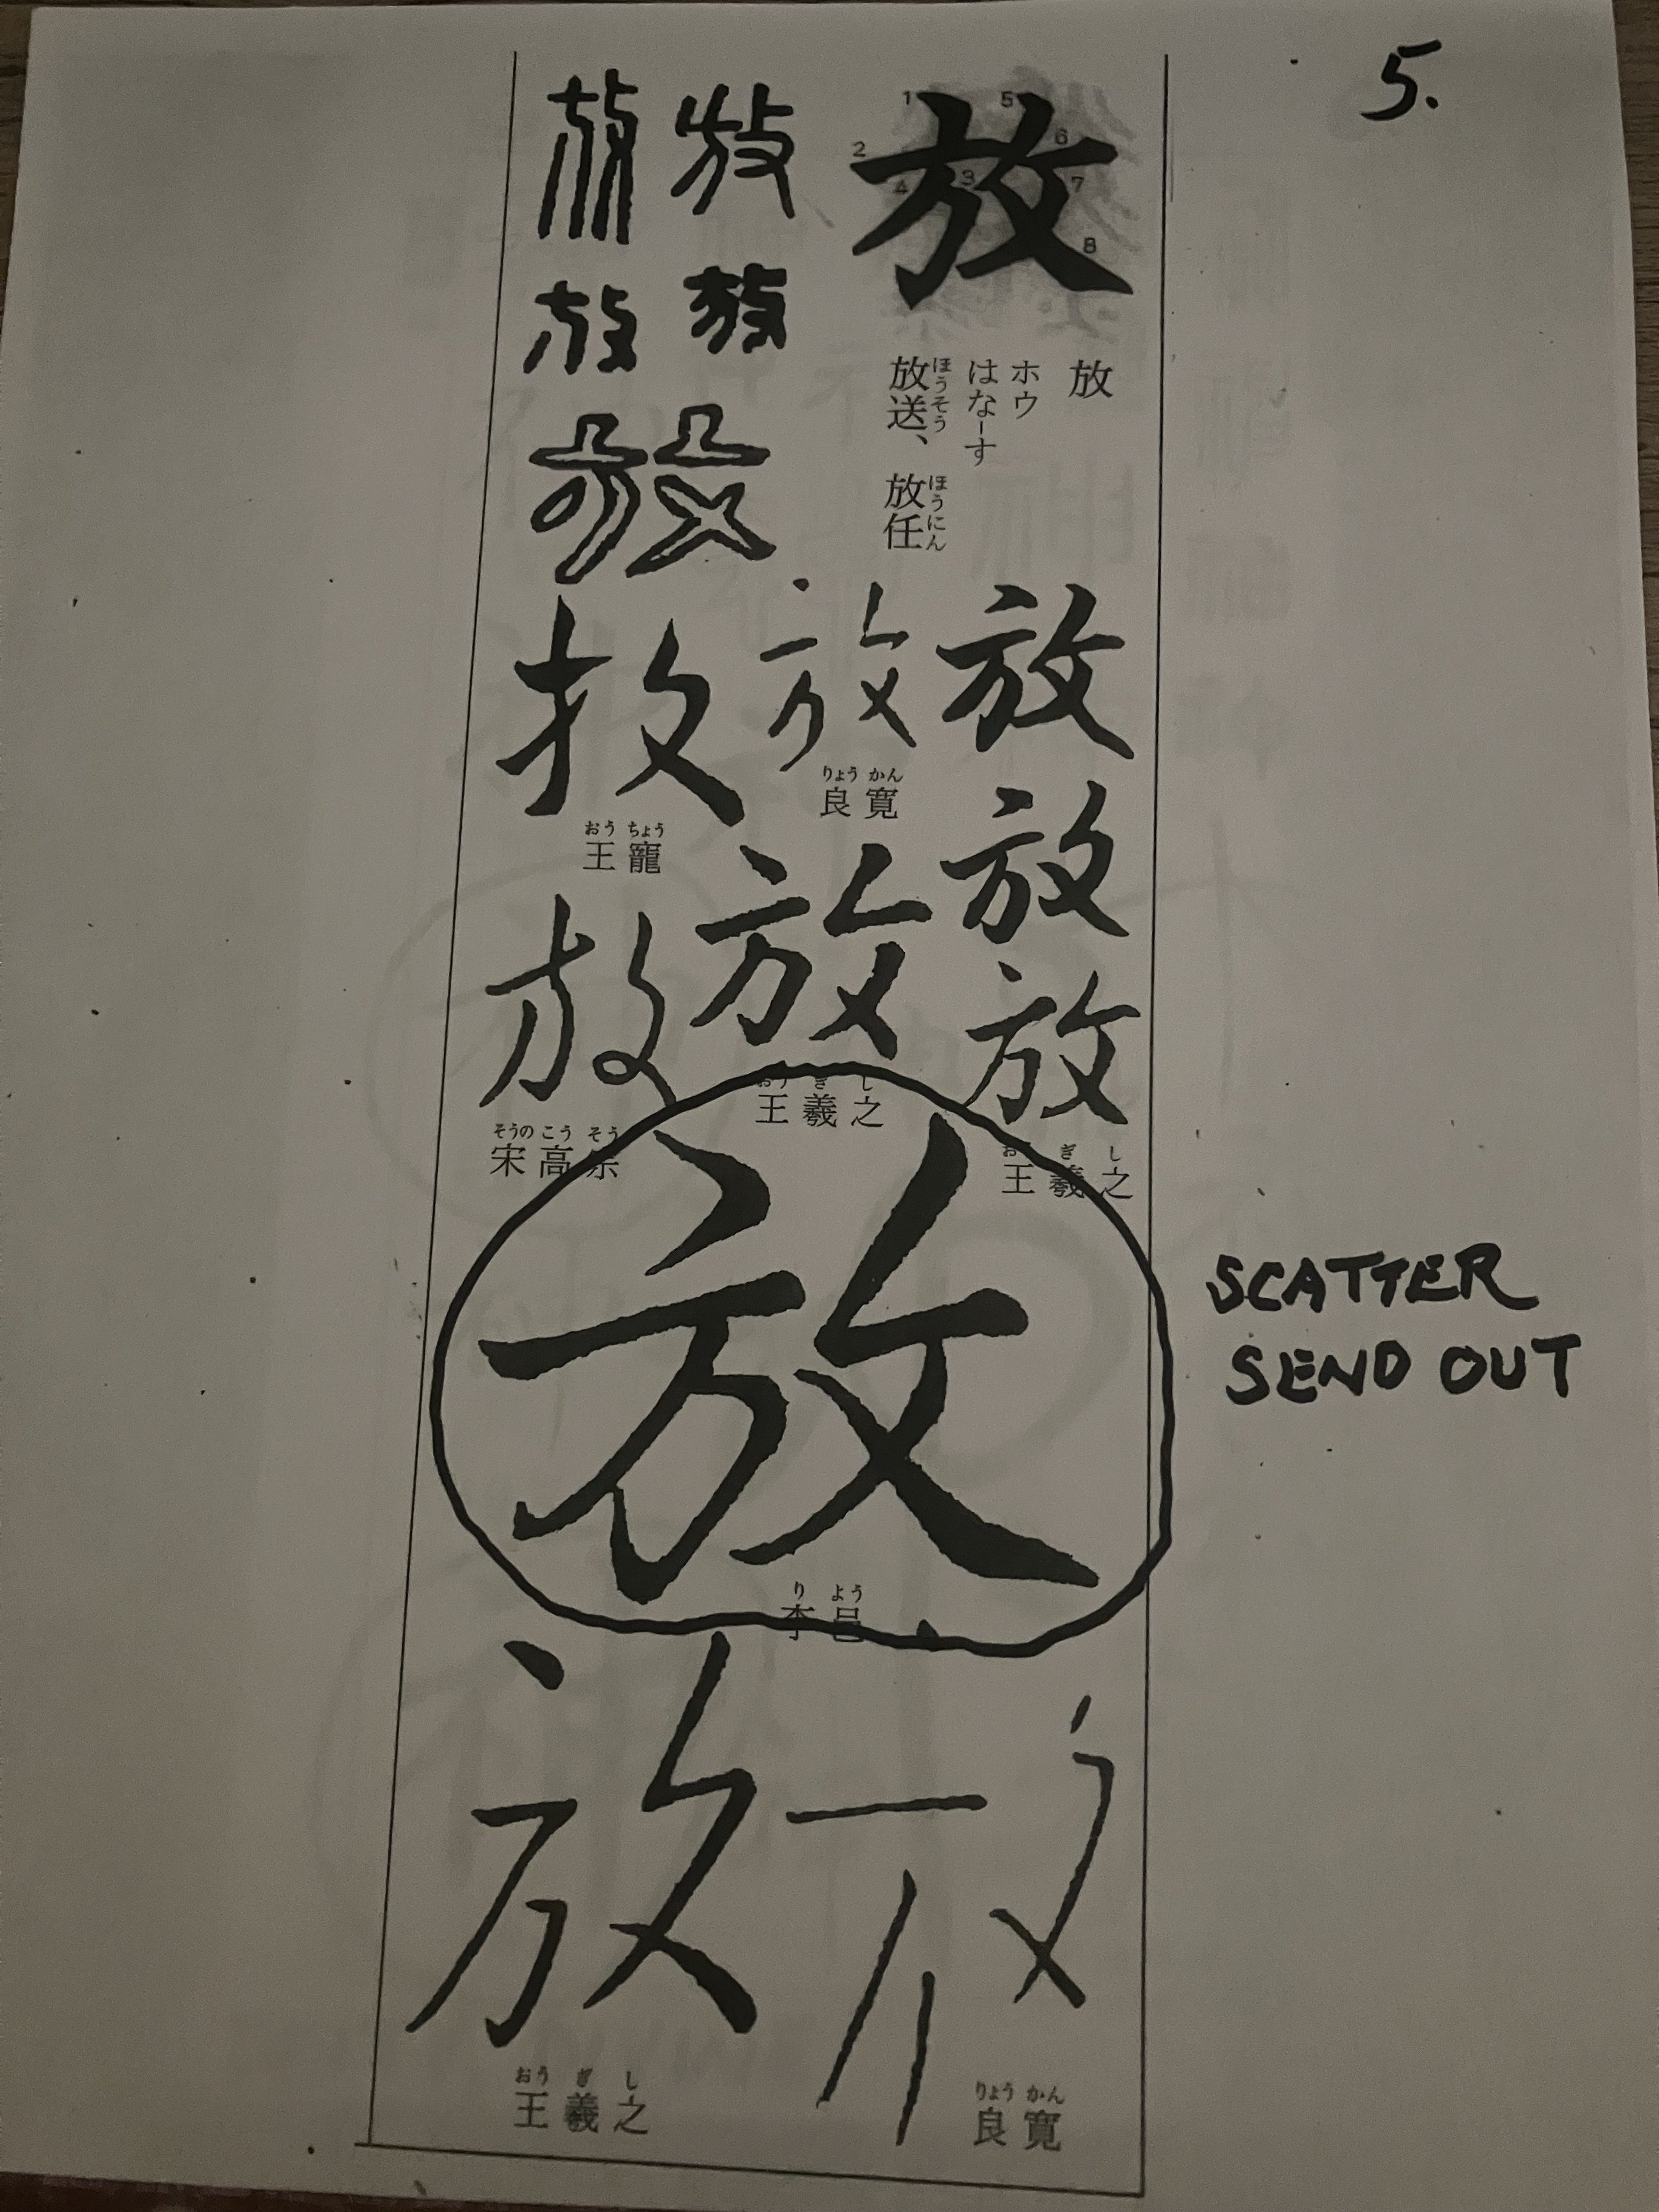 5.
放
1
2
3
4
5
6
7
8
放
ホウ
はな-す
放送、放任
ほうそう
ほうにん
放
放
放
王羲之
おうぎし
放
放
放
放
放
放
良寛
りょうかん
放
王羲之
おうぎし
放
王寵
おうちょう
放
宋高宗
そうのこうそう
放
李邕
りよう
SCATTER
SEND OUT
放
良寛
りょうかん
放
王羲之
おうぎし